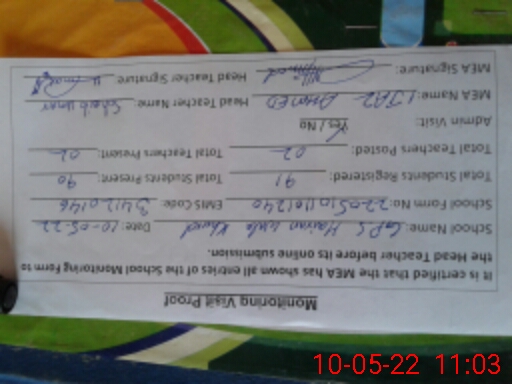 Monitoring Visit Proof
It is certified that the MEA has shown all entries of the School Monitoring Form to
the Head Teacher before its online submission.
School Name: GPS Khurd Date: 10-05-22
School Form No: EMIS Code: 34120146
Total Students Registered: 91 Total Students Present: 90
Total Teachers Posted: 02 Total Teachers Present: 02
Admin Visit: Yes / No
MEA Name: IJAZ AHMED Head Teacher Name:
MEA Signature: Head Teacher Signature
10-05-22 11:03